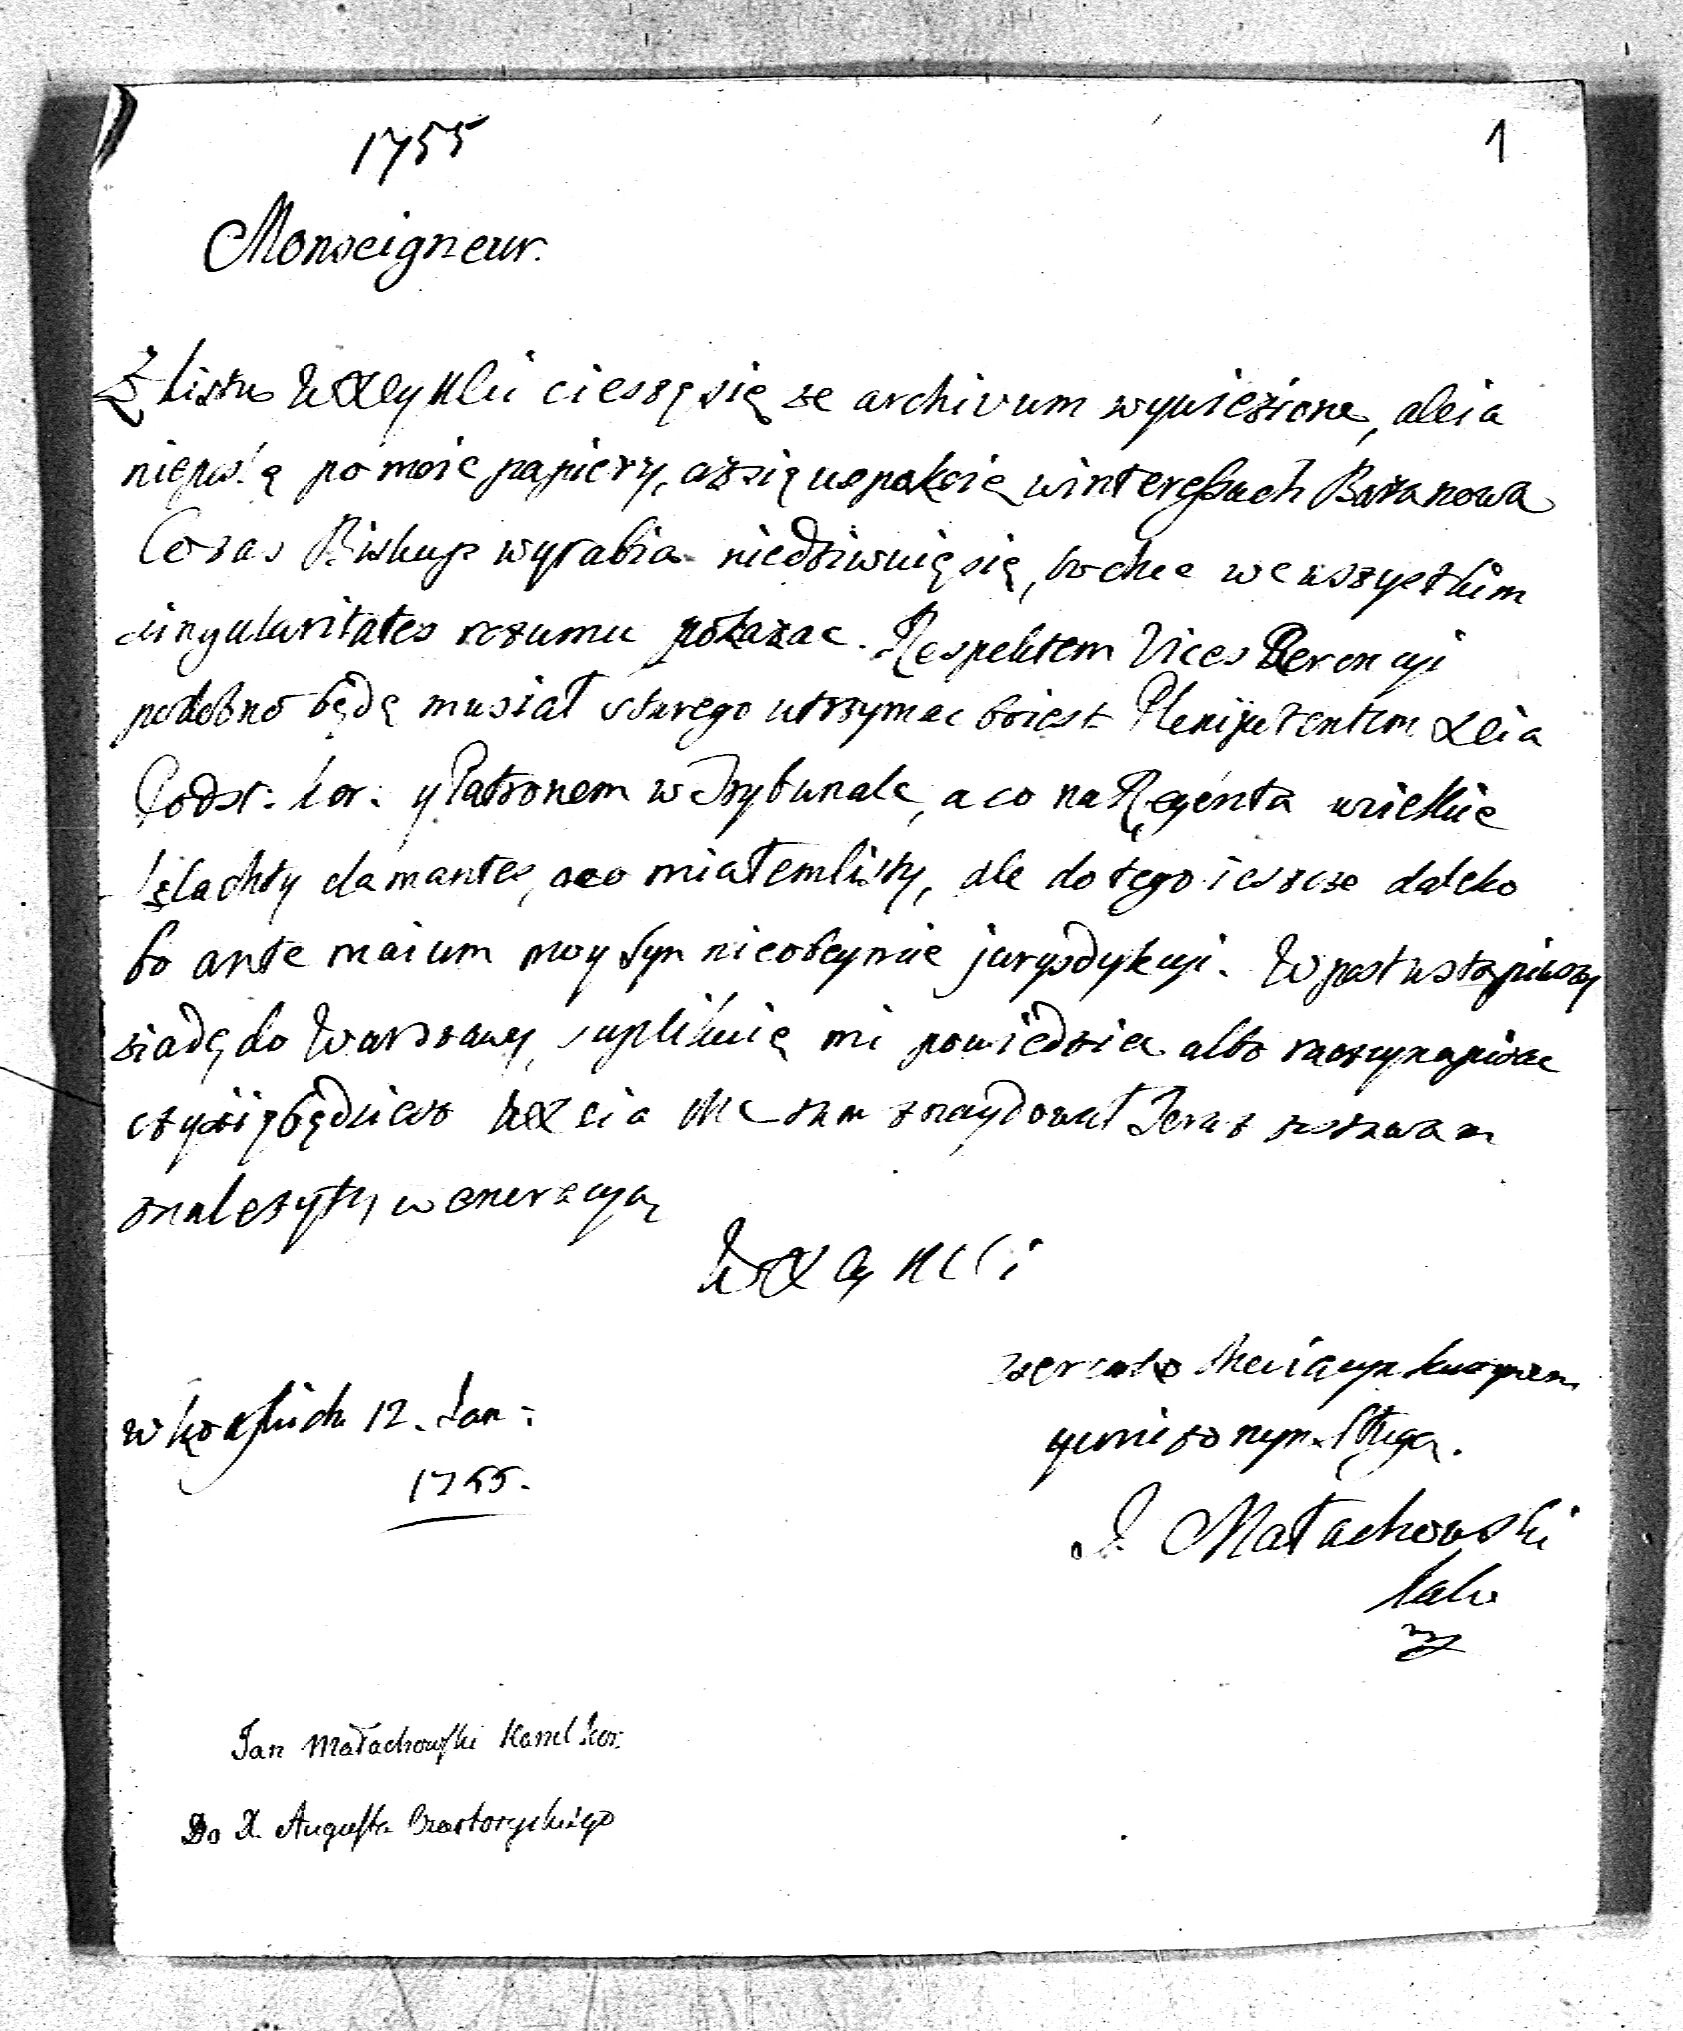 1755
1
Monseigneur.
Z listu WXCyMci cieszę się ze archivum wywiezione, aleia
nieposlę po moie papiery, azsię uspakoię winteressach Baranowa
Co zas Biskup wyrabia niedziwuię się, bo chce we wszystkim
singularitates rozumu pokazac. Respektem Vices Gerencyi
podobno będę musiał starego utrzymac boiest Plenipotentem Xcia
Podst: Lor: y Patronem w Trybunale, a co na Regenta wielkie
szlachty clamantes, miałemlisty, ale do tego ieszcze daleko
bo ante maium moy Syn nieobeymie jurysdykcyi. Wpost wstąpiwszy
ziadę do Warszawy, suplikuię mi powiedziec albo napisac
czylisię będziesz WXcia Mc tam znaydował Teraz zostawam
znalezytą weneracyą
WXCyMCi
uniżonym Sługą.
w Końskich 12. Jan:
1755.
J. Małachowski
Jan Małachowski Kancl Kor:
Do X. Augusta Czartoryskiego